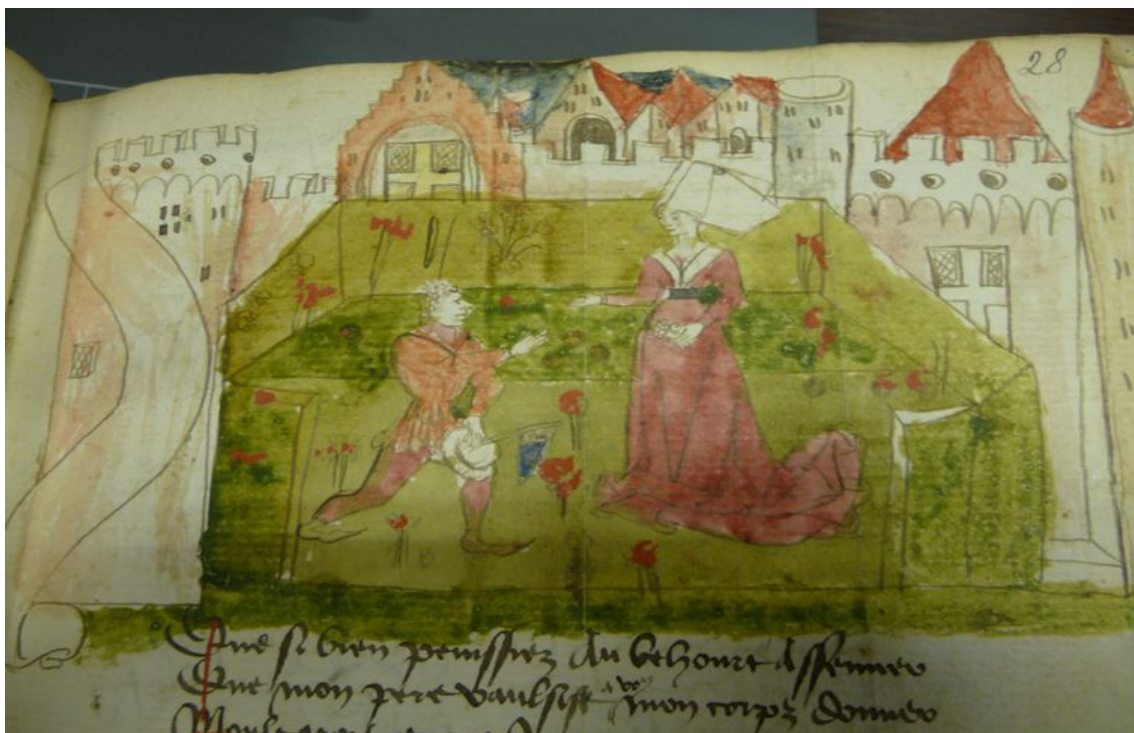 28
Que si bien peuissiez au behourt assenner
Que mon pere vaulsist a vous mon corpz donner